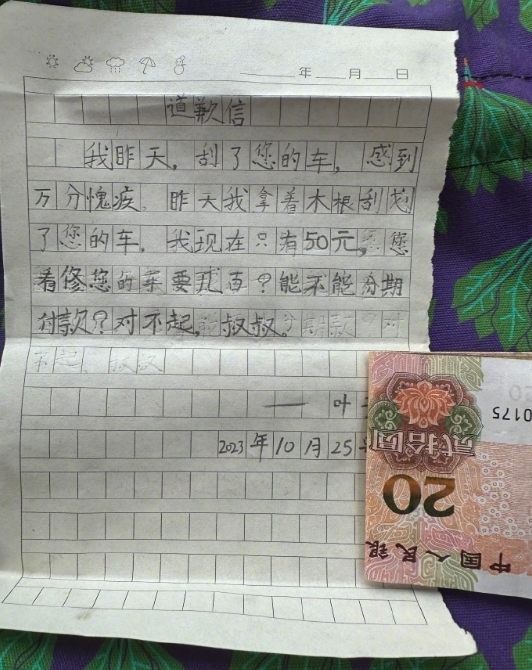 年 月 日
道歉信
我昨天，刮了您的车，感到
万分愧疚。昨天我拿着木根刮划
了您的车，我现在只有50元，您
看修您的车要几百？能不能分期
付款？对不起，叔叔。
不起，叔叔
——叶
2023年10月25
0175
贰拾圆
20
中国人民银